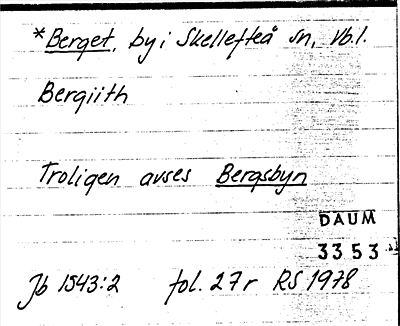 *Berget, by i Skellefteå sn, Vb.l.
Bergiith
Troligen avses Bergsbyn
DAUM
3353
Jb 1543:2 fol. 27r RS 1978